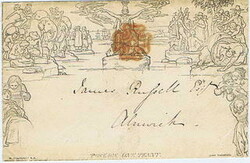 James Russell Esqr
Alnwick
POSTAGE ONE PENNY.